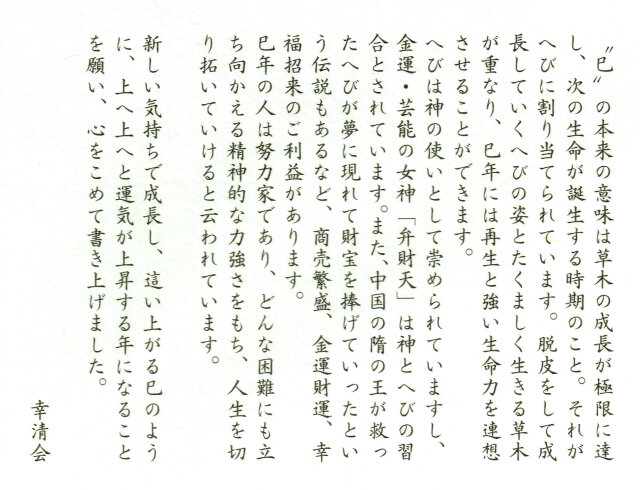 〝巳〟の本来の意味は草木の成長が極限に達
し、次の生命が誕生する時期のこと。それが
へびに割り当てられています。脱皮をして成
長していくへびの姿とたくましく生きる草木
が重なり、巳年には再生と強い生命力を連想
させることができます。
へびは神の使いとして崇められていますし、
金運・芸能の女神「弁財天」は神とへびの習
合とされています。また、中国の隋の王が救っ
たへびが夢に現れて財宝を捧げていったとい
う伝説もあるなど、商売繁盛、金運財運、幸
福招来のご利益があります。
巳年の人は努力家であり、どんな困難にも立
ち向かえる精神的な力強さをもち、人生を切
り拓いていけると云われています。
新しい気持ちで成長し、這い上がる巳のよう
に、上へ上へと運気が上昇する年になること
を願い、心をこめて書き上げました。
幸清会